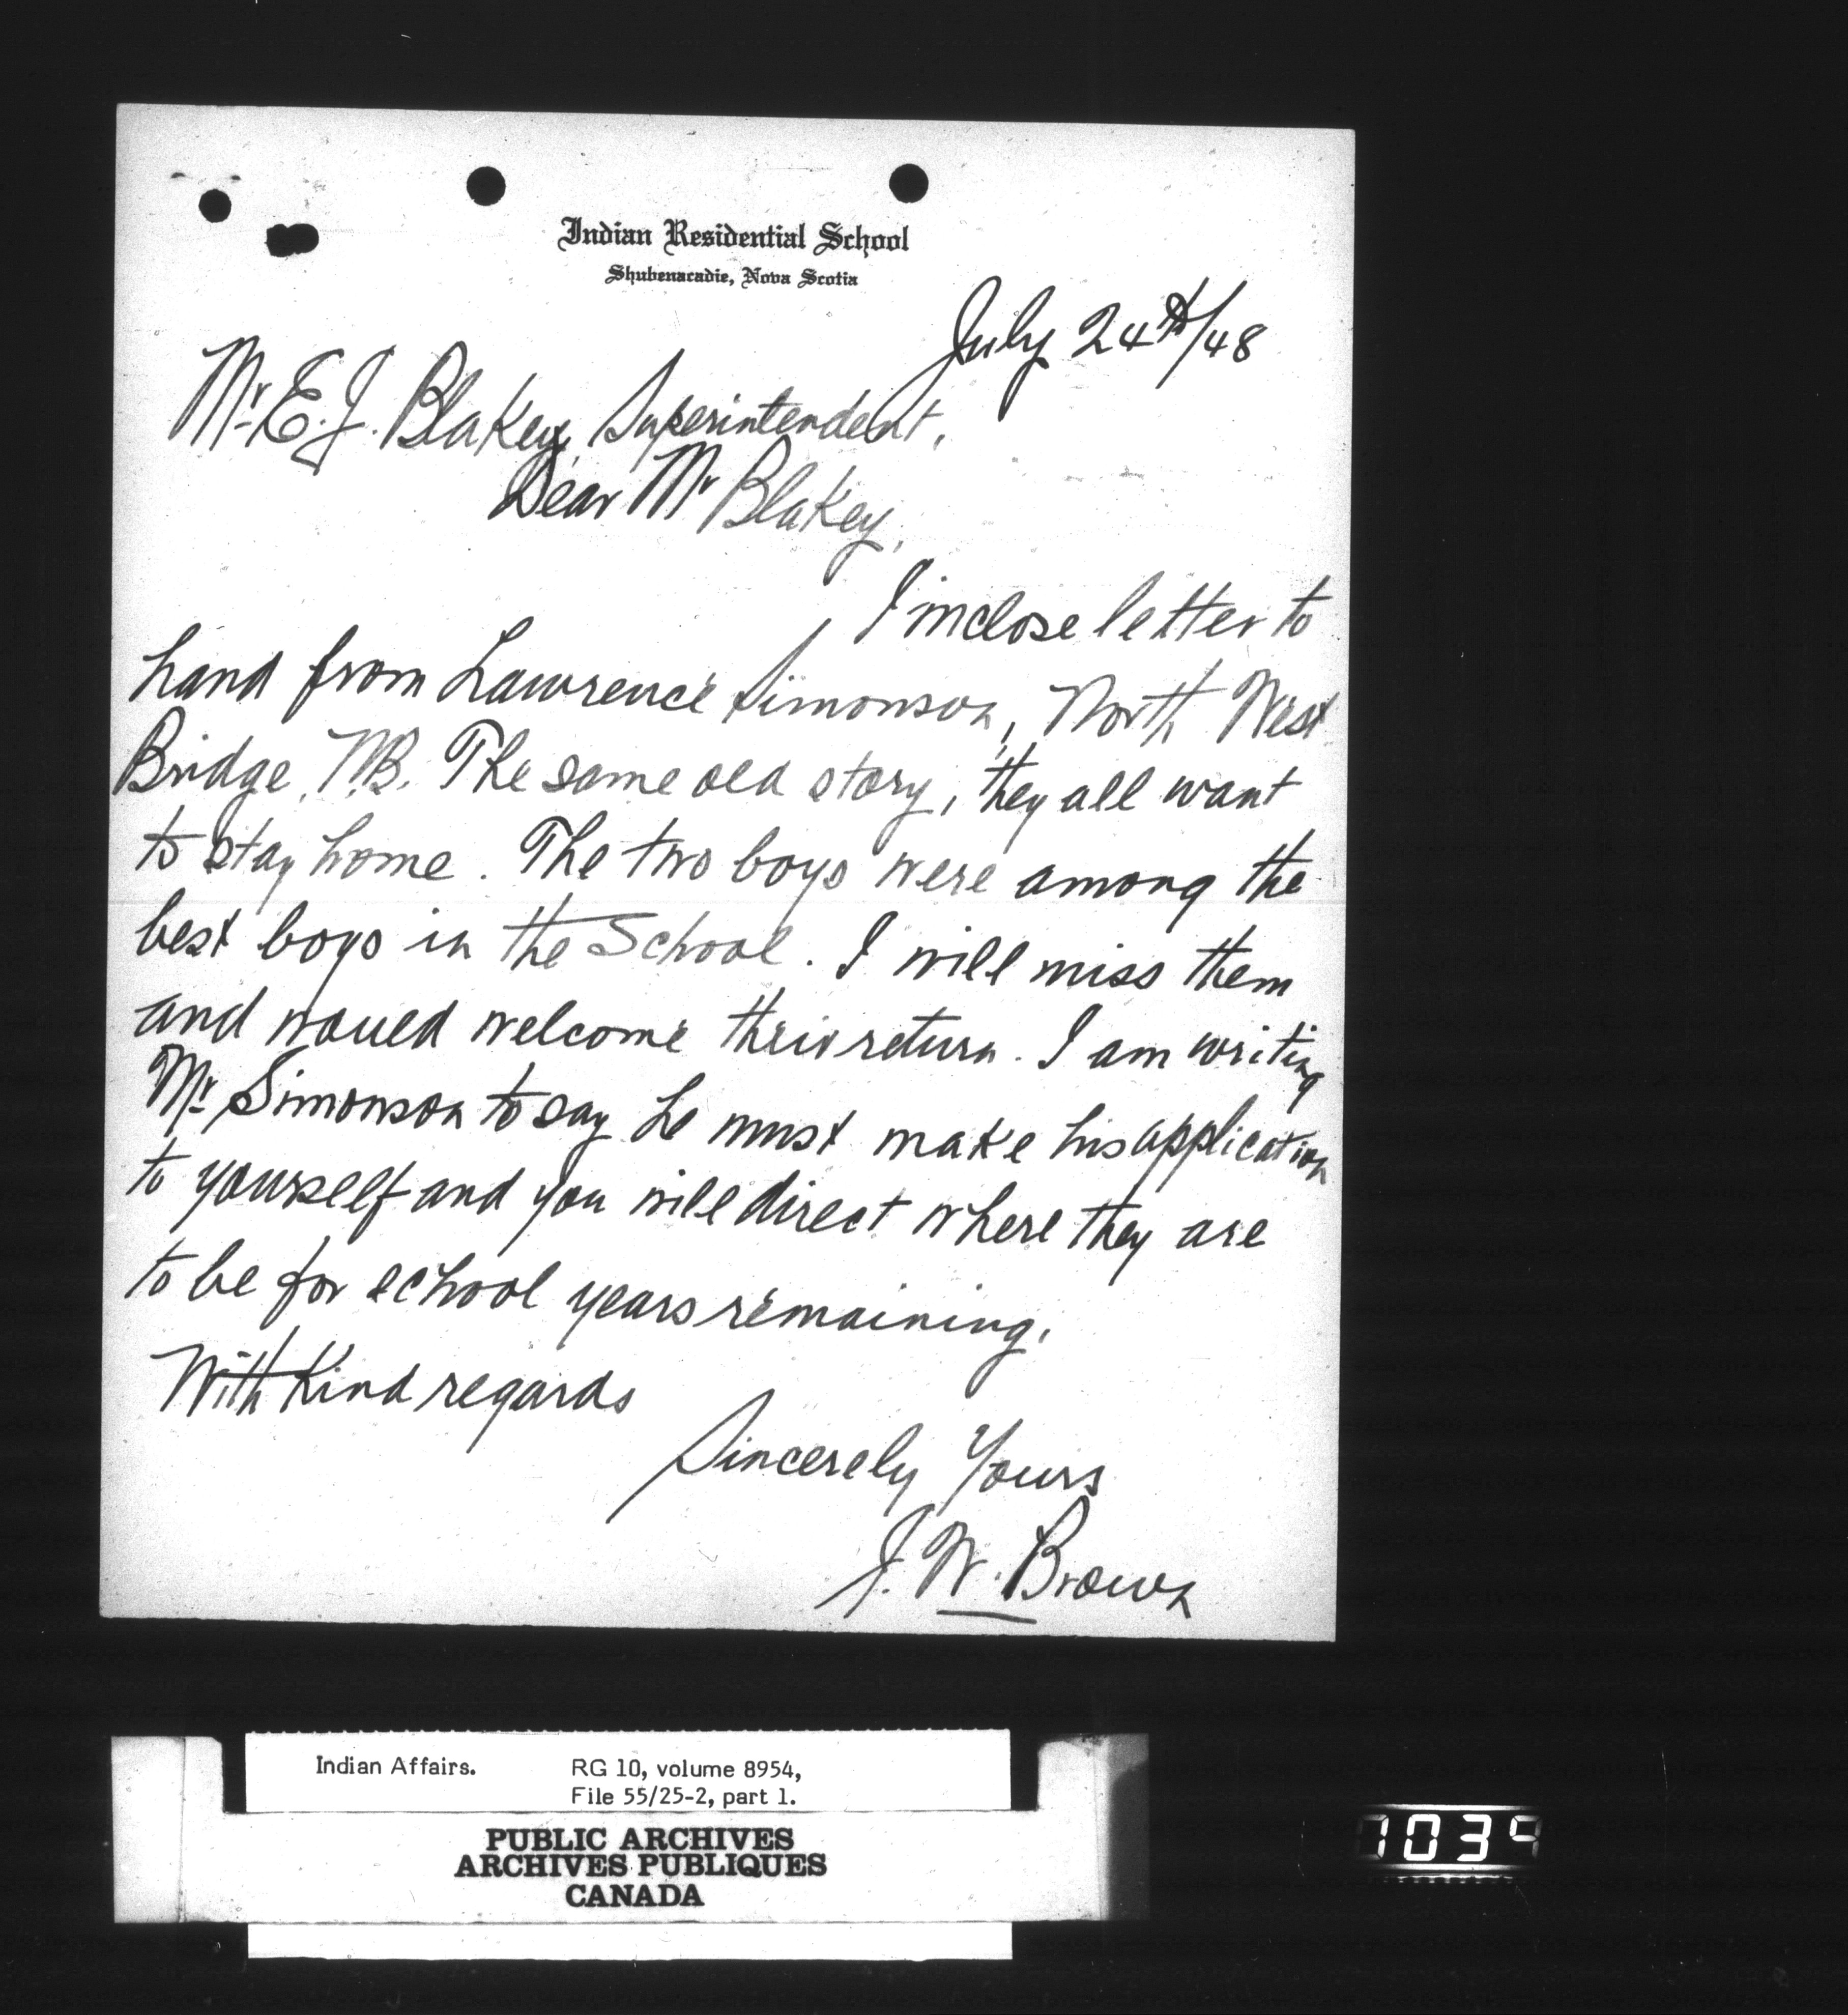 Indian Residential School
Shubenacadie, Nova Scotia
July 24th/48
Mr. E. J. Blakey, Superintendent,
Dear Mr Blakey,
I inclose letter to
hand from Lawrence Simonson, North West
Bridge, N.B. The same old story, they all want
to stay home. The two boys were among the
best boys in the School. I will miss them
and would welcome their return. I am writing
Mr. Simonson to say he must make his application
to yourself and you will direct where they are
to be for school years remaining.
With Kind regards
Sincerely Yours
J. W. Brown
Indian Affairs. RG 10, volume 8954,
File 55/25-2, part 1.
PUBLIC ARCHIVES
ARCHIVES PUBLIQUES
CANADA
1039